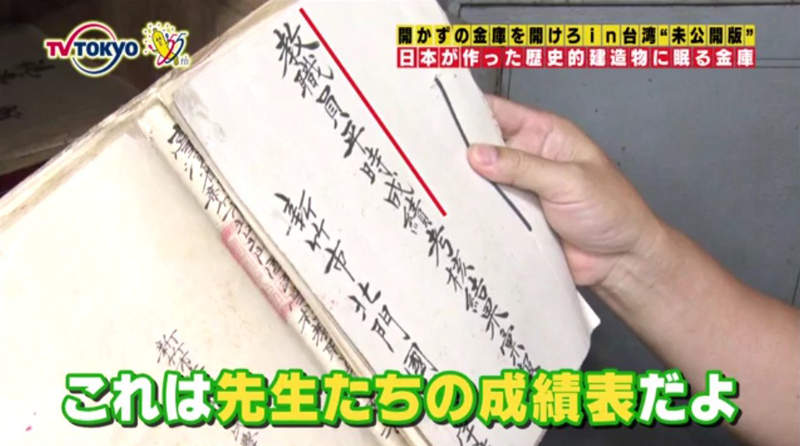 TV TOKYO
開かずの金庫を開けろin台湾“未公開版”
日本が作った歴史的建造物に眠る金庫
教職員平時成績考核結果彙報
新竹市北門國
これは先生たちの成績表だよ